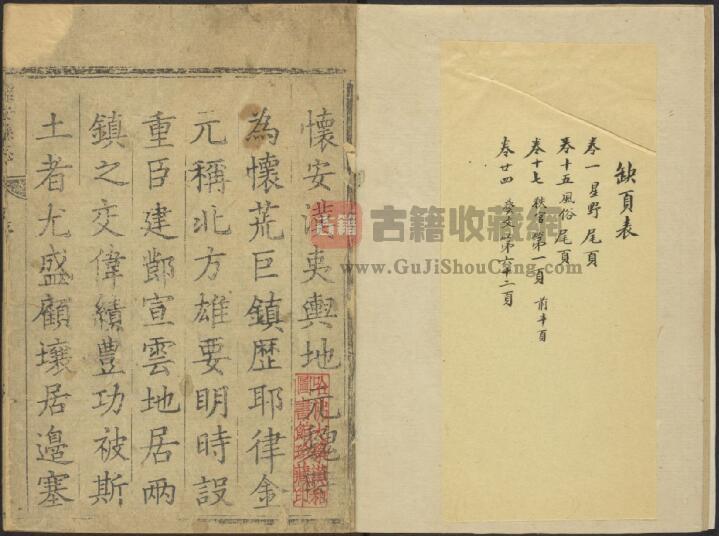 缺頁表
卷一 星野 尾頁
卷十五 風俗 尾頁
卷十七 秩官 第一頁 前半頁
卷廿四 藝文 第六十二頁
古籍 古籍收藏網
www.GuJiShouCang.com
懷安漢夷輿地元魏
為懷荒巨鎮歷耶律金
元稱北方雄要明時設
重臣建鄼宣雲地居兩
鎮之交偉績豐功被斯
土者尤盛顧壤居邊塞
圖書館珍藏印